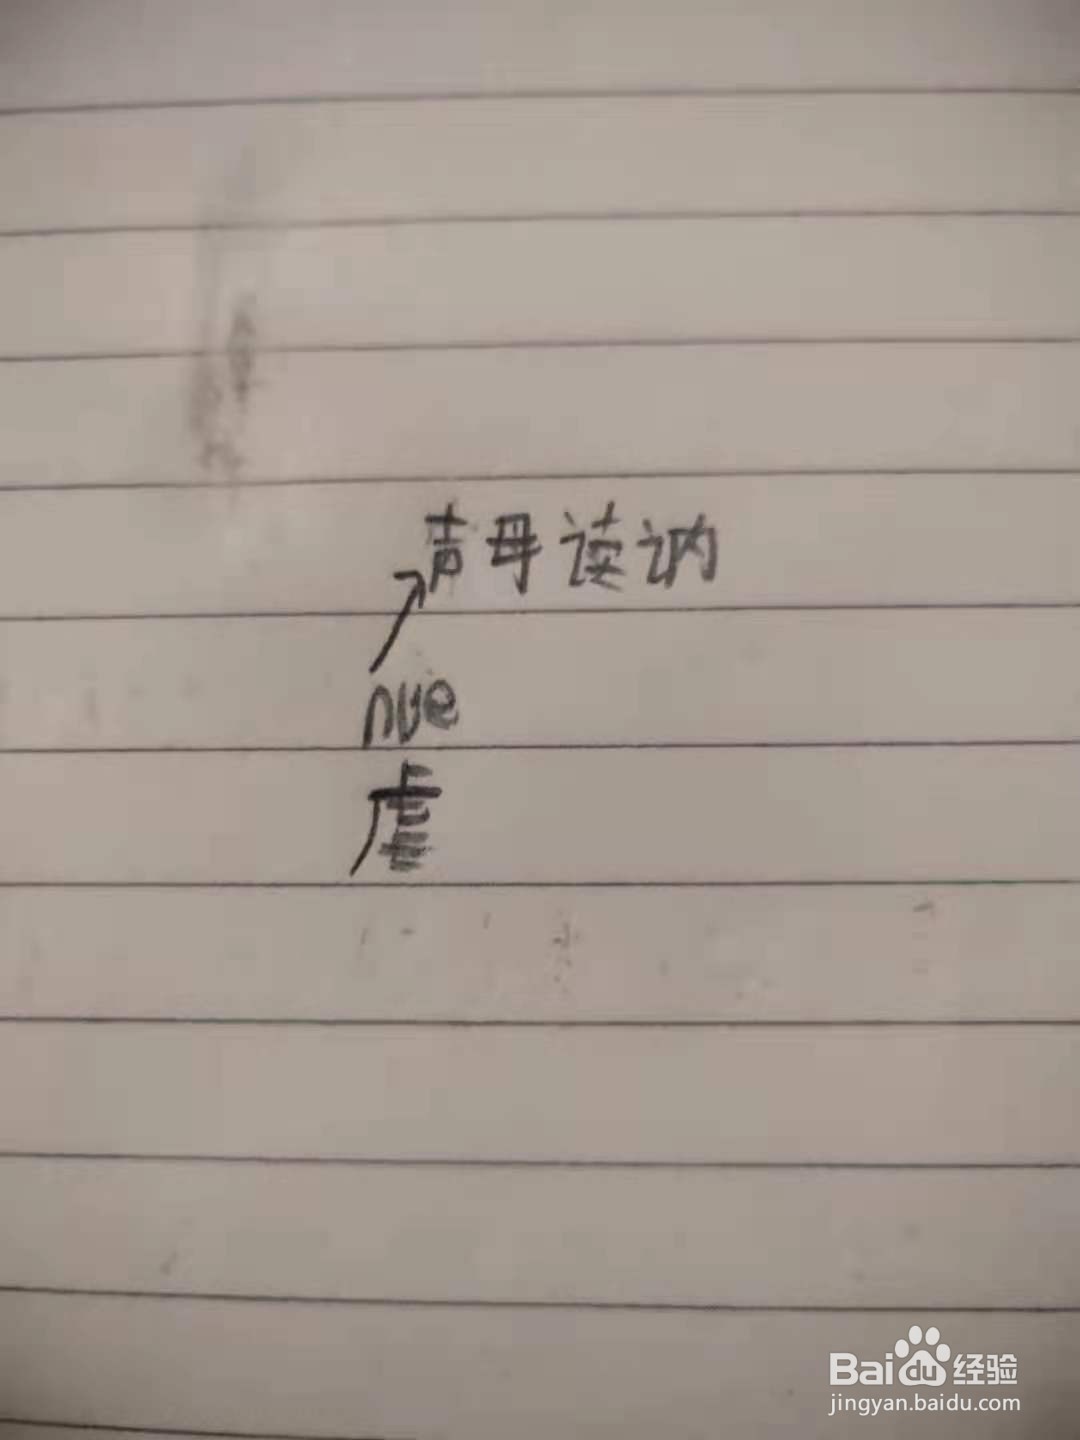 声母读讷
nue
虐
Baidu经验
jingyan.baidu.com